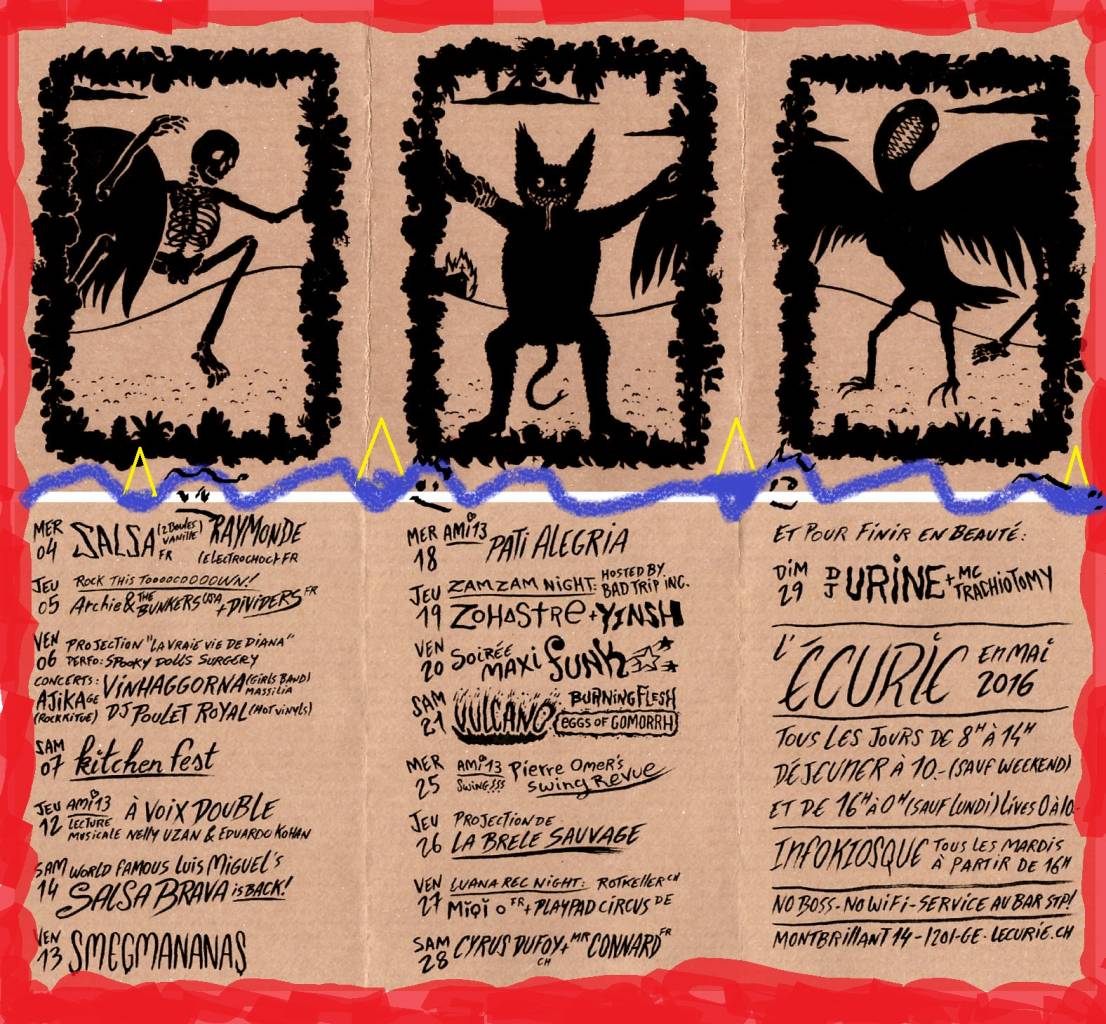 MER 04 SALSA (2 BOULES VANILLE) FR RAYMONDE (ELECTROCHOC) FR
JEU 05 ROCK THIS TOOOOCOOOOWN!
ARCHIE & THE BUNKERS USA + DIVIDERS FR
VEN 06 PROJECTION "LA VRAIE VIE DE DIANA"
PERFO: SPOOKY DOLLS SURGERY
CONCERTS: VINHAGGORNA (GIRLS BAND) MASSILIA
AJIKA GE (ROCKRITUE) DJ POULET ROYAL (HOT VINYLS)
SAM 07 kitchen fest
JEU 12 AMI13 LECTURE MUSICALE À VOIX DOUBLE
NELLY UZAN & EDUARDO KOHAN
SAM 14 WORLD FAMOUS LUIS MIGUEL'S
SALSA BRAVA IS BACK!
VEN 13 SMEGMANANAS
MER 18 AMI13 PATI ALEGRIA
JEU 19 ZAM ZAM NIGHT: HOSTED BY BAD TRIP INC.
ZOHASTRE + YINSH
VEN 20 SOIRÉE MAXI FUNK
SAM 21 VULCANO BURNING FLESH
EGGS OF GOMORRH
MER 25 AMI13 SWING!!! Pierre Omer's Swing Revue
JEU 26 PROJECTION DE
LA BRELE SAUVAGE
VEN 27 LUANA REC NIGHT: ROTKELLER CH
MIQI O FR + PLAYPAD CIRCUS DE
SAM 28 CYRUS DUFOY CH + MR CONNARD FR
ET POUR FINIR EN BEAUTÉ:
DIM 29 DJ URINE + MC TRACHIOTOMY
L'ÉCURIE EN MAI 2016
TOUS LES JOURS DE 8H À 14H
DÉJEUNER À 10.- (SAUF WEEKEND)
ET DE 16H À 0H (SAUF LUNDI) LIVES 0 À 10.-
INFOKIOSQUE TOUS LES MARDIS À PARTIR DE 16H
NO BOSS - NO WIFI - SERVICE AU BAR STP!
MONTBRILLANT 14 - 1201 - GE - LECURIE.CH